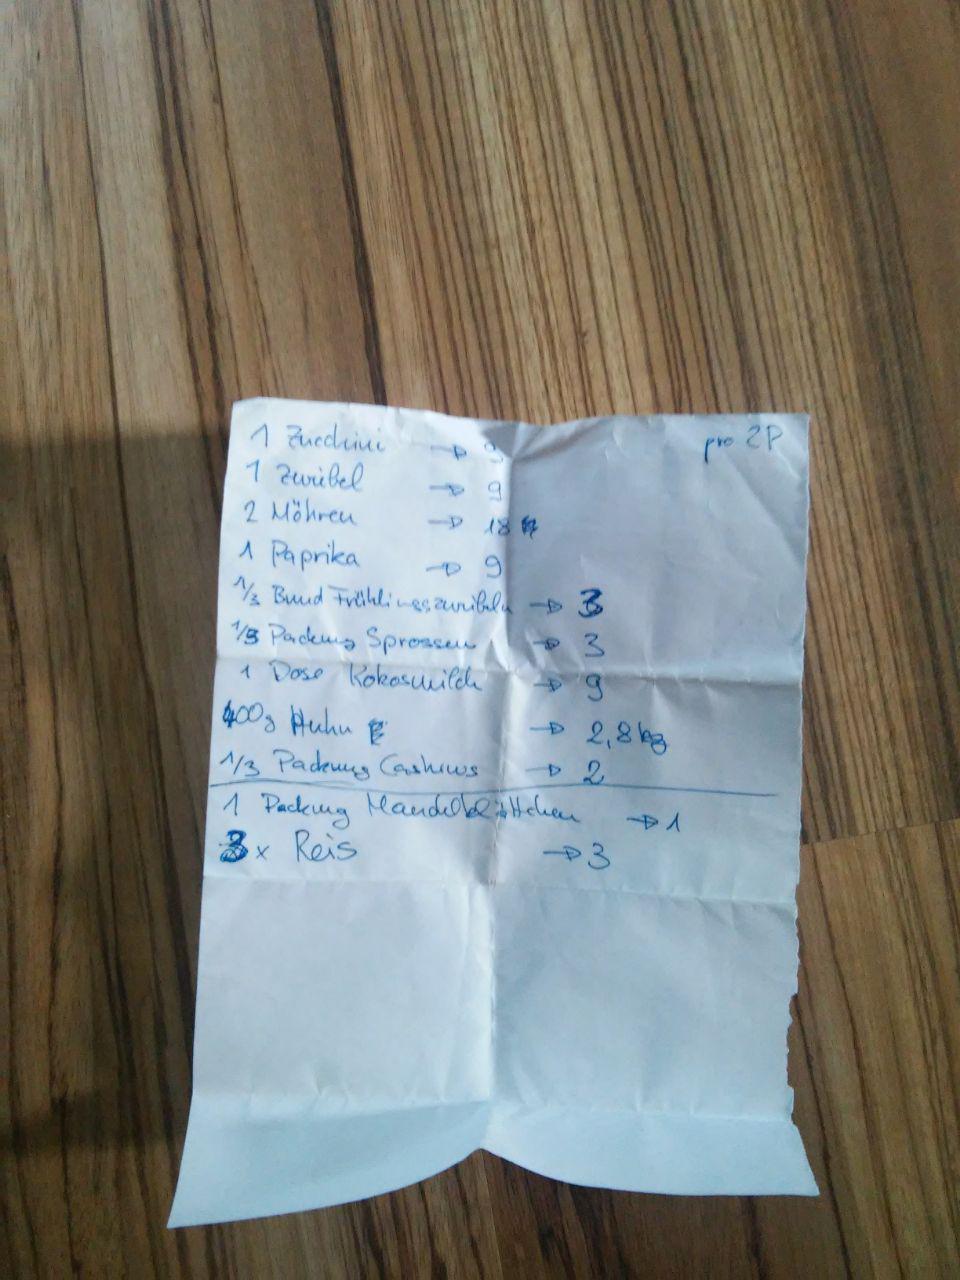 pro 2P
1 Zucchini → 9
1 Zwiebel → 9
2 Möhren → 18
1 Paprika → 9
1/3 Bund Frühlingszwiebeln → 3
1/3 Packung Sprossen → 3
1 Dose Kokosmilch → 9
400g Huhn → 2,8kg
1/3 Packung Cashews → 2
1 Packung Mandelblättchen → 1
3x Reis → 3